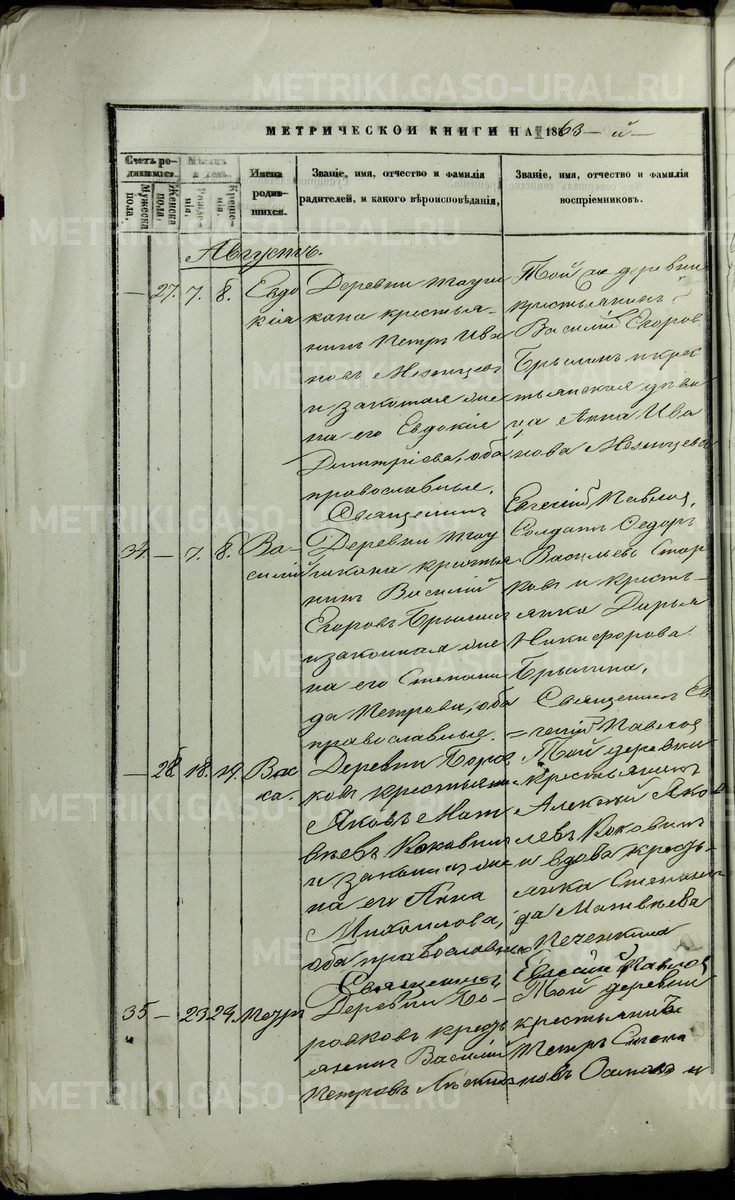 МЕТРИЧЕСКОЙ КНИГИ НА 1863-й
Счетъ ро-
дившихся.
Мужеска
пола.
Женска
пола.
Мѣсяцъ
и день.
Рожде-
нія.
Креще-
нія.
Имена
родив-
шихся.
Званіе, имя, отчество и фамилія
родителей, и какого вѣроисповѣданія,
Званіе, имя, отчество и фамилія
воспріемниковъ.
Августъ.
— 27. 7. 8.
Евдо
кія
Деревни
кана крестья-
нинъ Петръ Ива
новъ
и законная же
на его Евдокія
Димитріева, оба
православные.
Той же деревни
крестьянинъ
Василій Егоровъ
Брылинъ и крес
тьянская дѣви
ца Анна Ива
нова
Священникъ Евгеній Павлов
34. — 7. 8.
Ва-
силій
Деревни
кана крестья
нинъ Василій
Егоровъ Брылинъ
и законная же
на его Степани
да Петрова, оба
православные.
Солдатъ Ѳедоръ
Васильевъ
ковъ и кресть-
янка Дарья
Никифорова
Брылина,
Священникъ Ев
геній Павлов
— 28 18. 19.
Васса.
Деревни Боров
ковъ крестьянинъ
Яковъ Мат
вѣевъ Коковинъ
и законная же
на его Анна
Михаилова,
оба православные
Той деревни
крестьянинъ
Алексѣй Яков
левъ Коковинъ
и вдова кресть-
янка Степани
да Матвѣева
Печенкина
Священникъ Евгеній Павлов
35 — 23 24.
Петръ
Деревни Бо-
ровковъ кресть
янинъ Василій
Петровъ
Той деревни
крестьянинъ
Петръ Степа
новъ и
METRIKI.GASO-URAL.RU